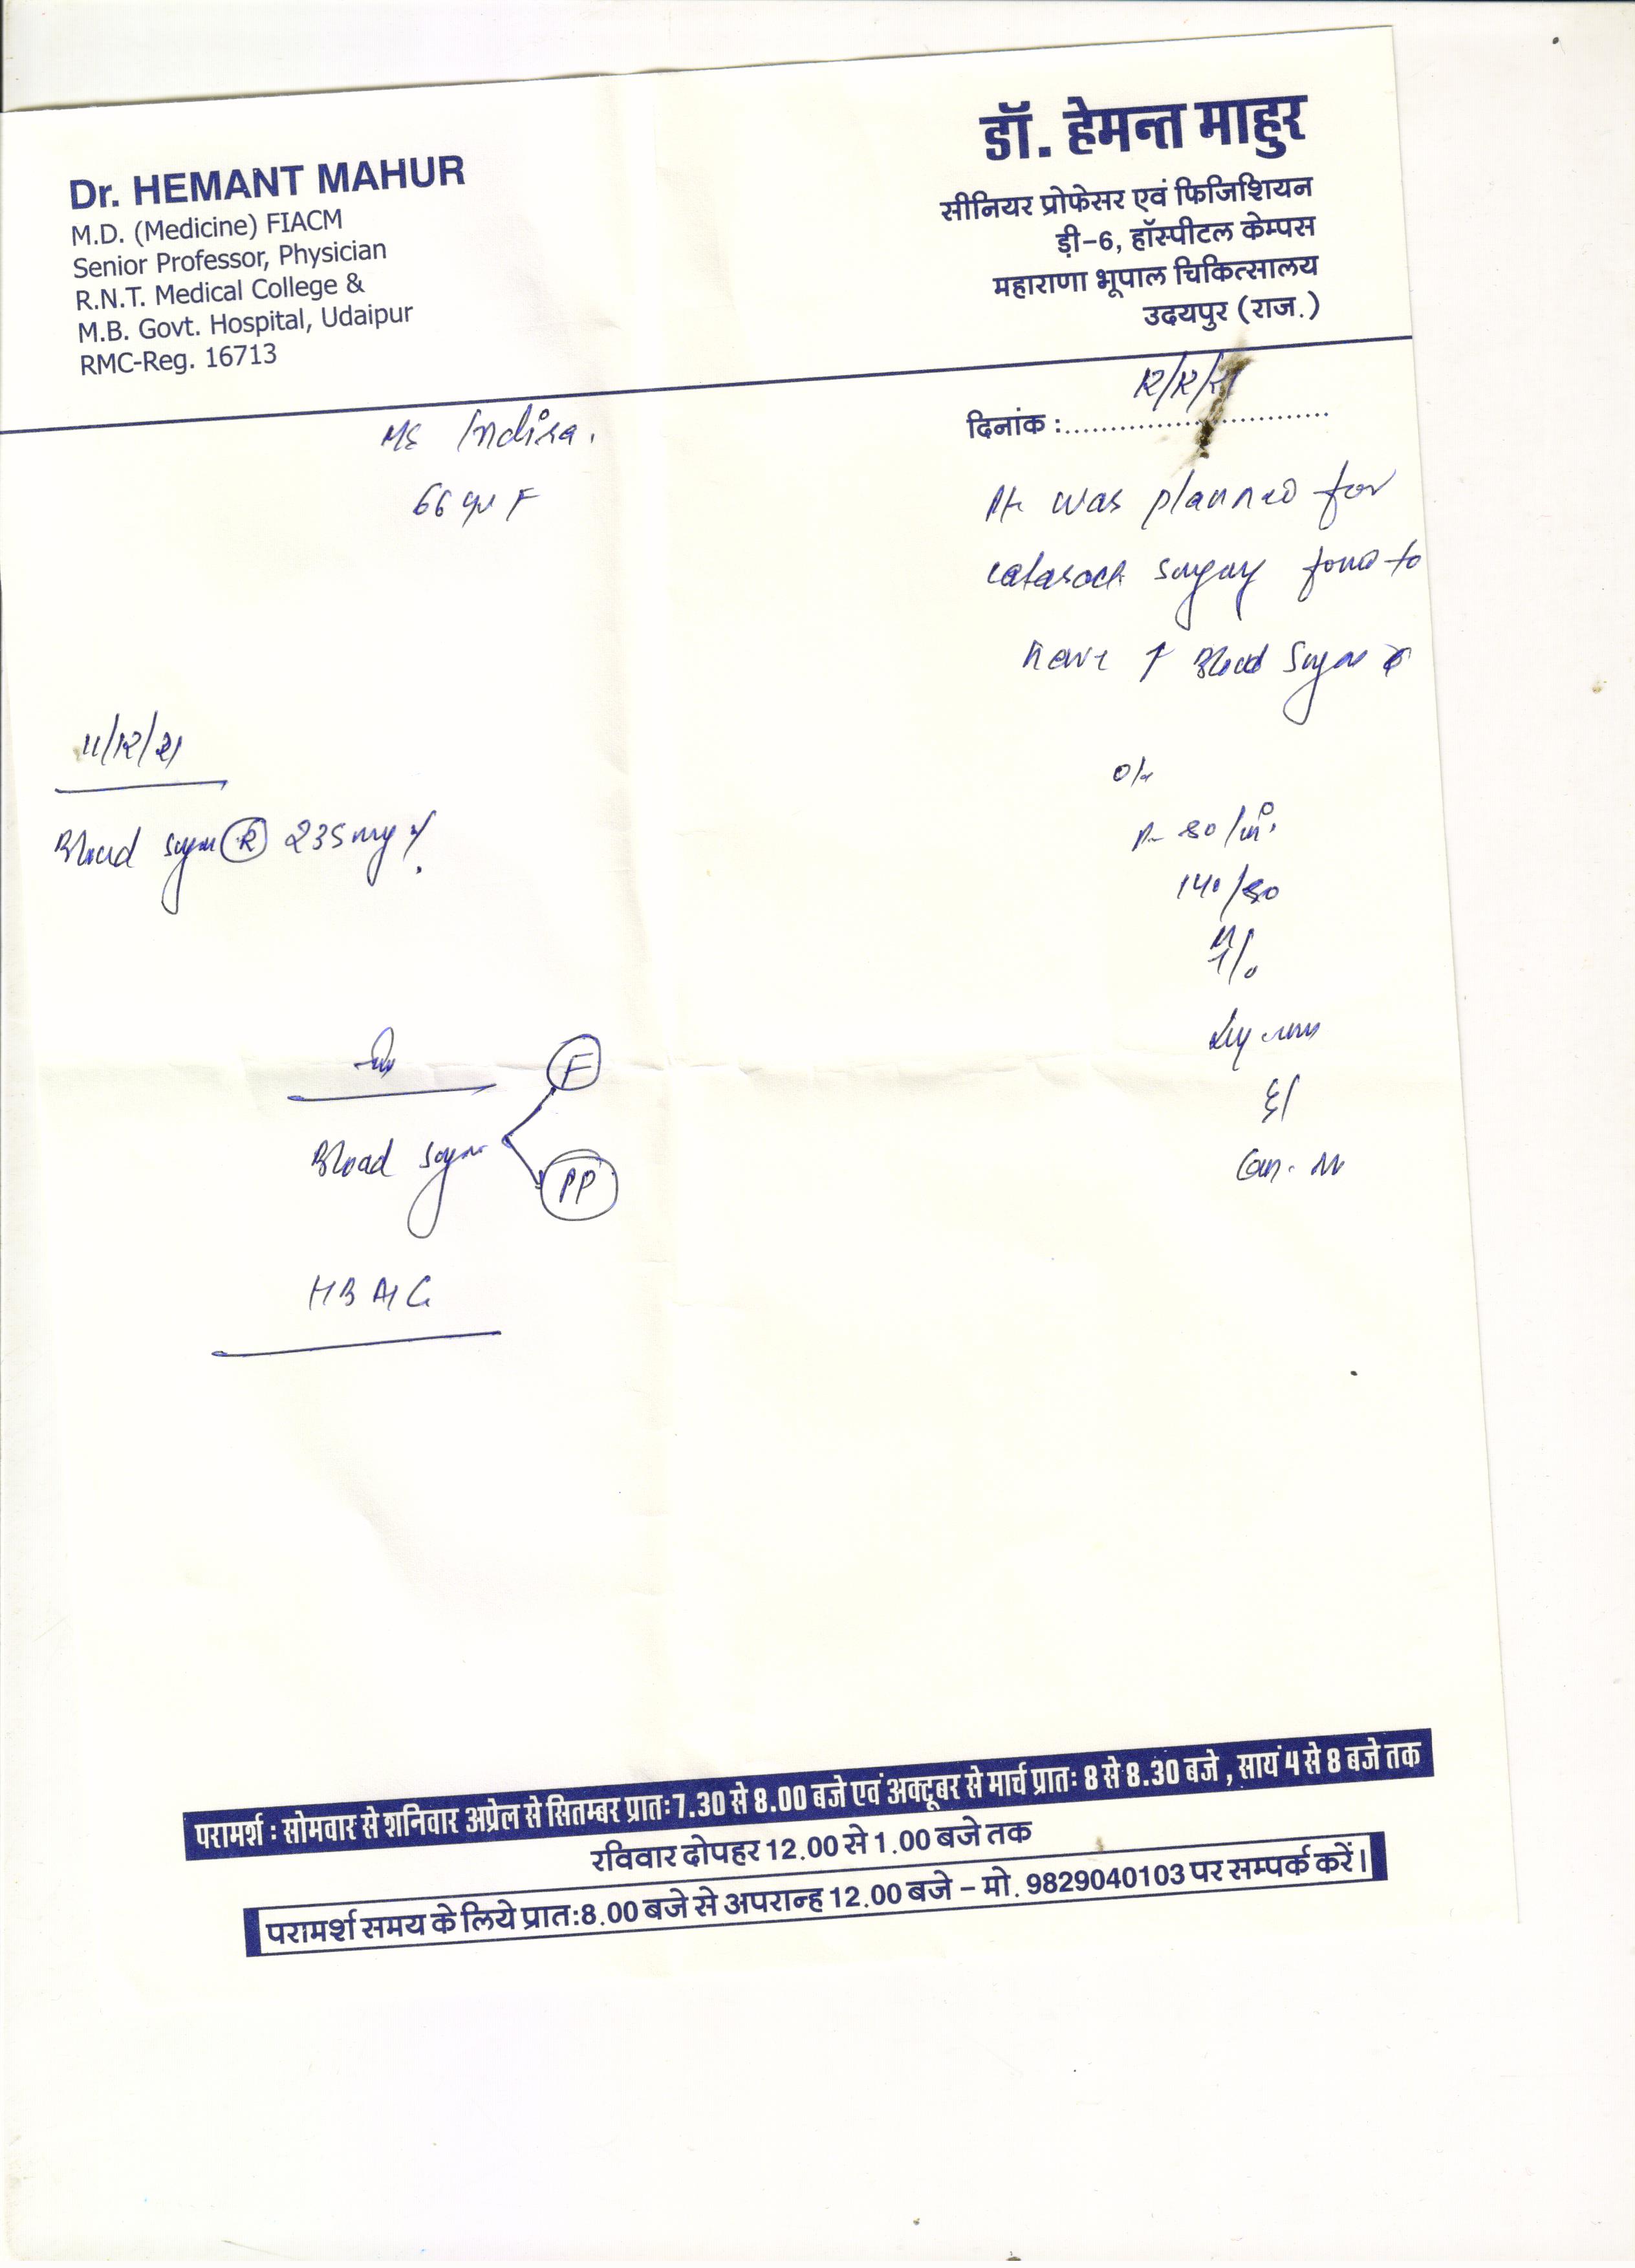 Dr. HEMANT MAHUR
M.D. (Medicine) FIACM
Senior Professor, Physician
R.N.T. Medical College &
M.B. Govt. Hospital, Udaipur
RMC-Reg. 16713
डॉ. हेमन्त माहुर
सीनियर प्रोफेसर एवं फिजिशियन
ड़ी-6, हॉस्पीटल केम्पस
महाराणा भूपाल चिकित्सालय
उदयपुर (राज.)
दिनांक :
Ms Indira.
66 yr F
Pt was planned for
cataract surgery found to
have ↑ Blood Sugar
11/12/21
Blood sugar (R) 235 mg %
O/E
P- 80/m.
140/80
Blood sugar
F
PP
HBA1C
परामर्श : सोमवार से शनिवार अप्रेल से सितम्बर प्रातः 7.30 से 8.00 बजे एवं अक्टूबर से मार्च प्रातः 8 से 8.30 बजे , सायं 4 से 8 बजे तक
रविवार दोपहर 12.00 से 1.00 बजे तक
परामर्श समय के लिये प्रात:8.00 बजे से अपरान्ह 12.00 बजे – मो. 9829040103 पर सम्पर्क करें।